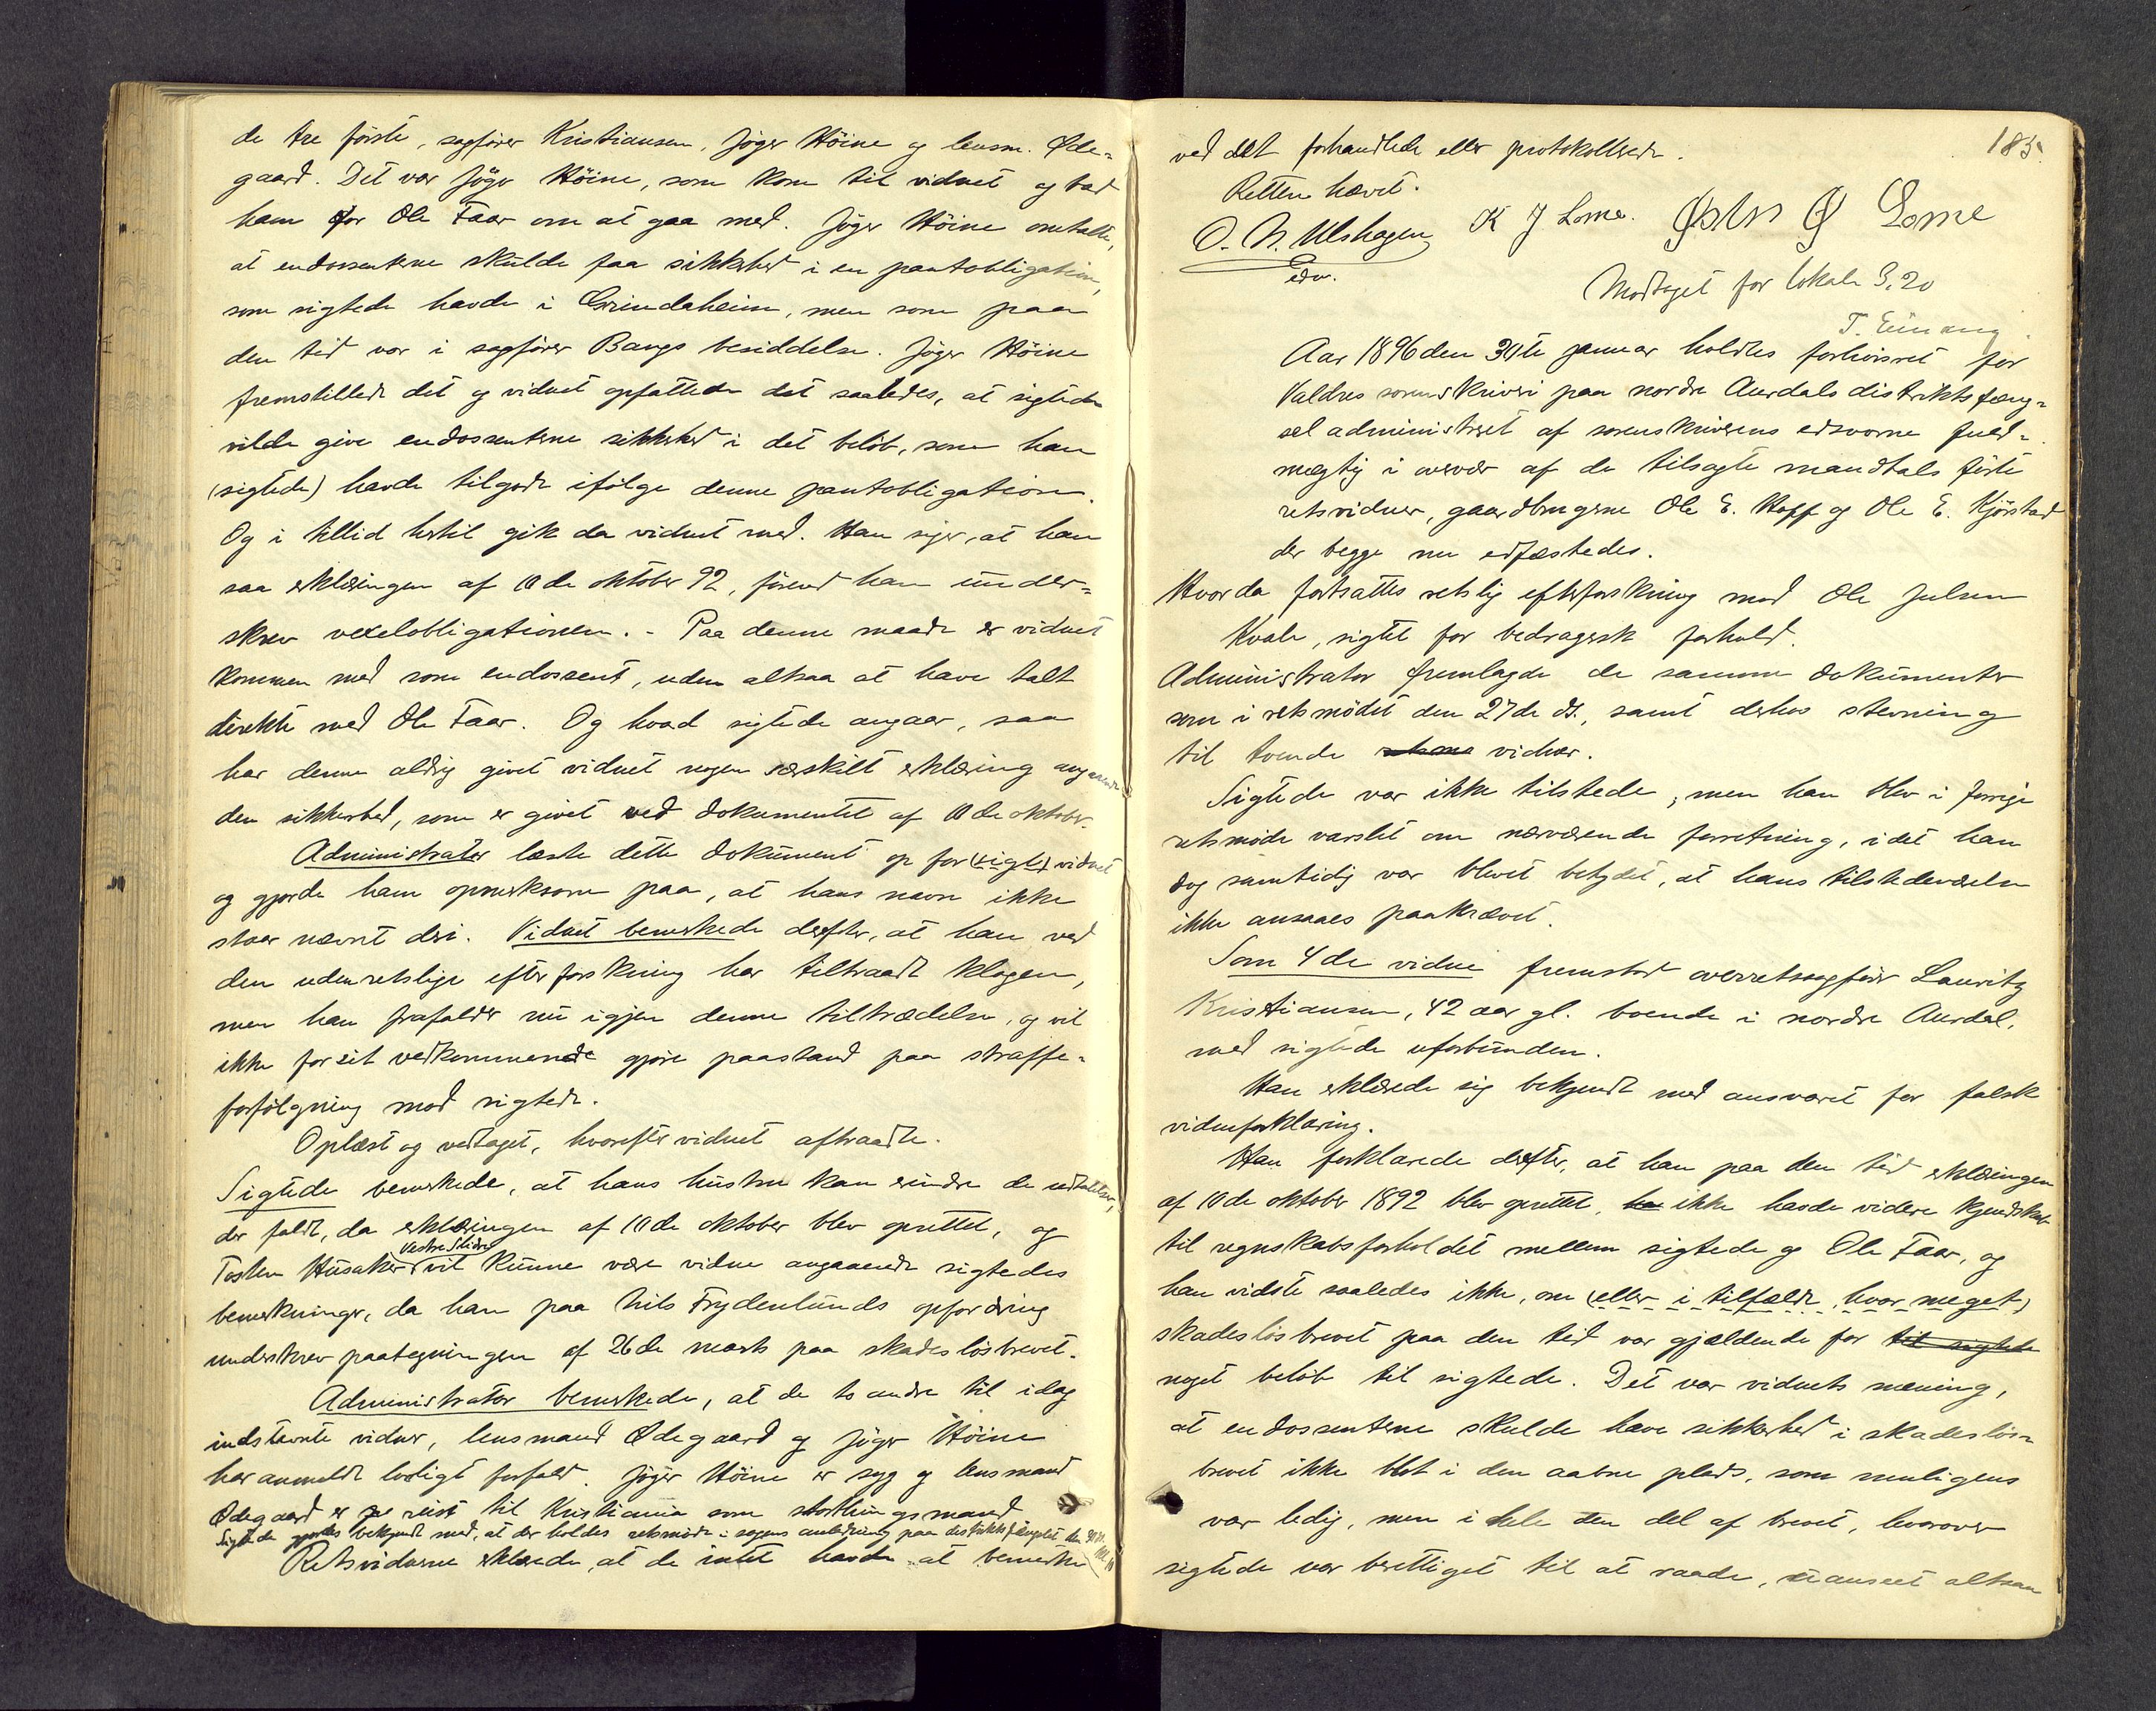 de tre første, sagfører Kristiansen, Jøger Høine og lensm. Øde-
gaard. Det var Jøger Høine, som kom til vidnet og bad
ham for Ole Faar om at gaa med. Jøger Høine omtalte,
at endossenterne skulde faa sikkerhed i en pantobligation,
som sigtede havde i Grindaheim, men som paa
den tid var i sagfører Bangs besiddelse. Jøger Høine
fremstillede det og vidnet opfattede det saaledes, at sigtede
vilde give endossenterne sikkerhed i det beløb, som han
(sigtede) havde tilgode ifølge denne pantobligation.
Og i tillid hertil gik da vidnet med. Han siger, at han
saa erklæringen af 10de oktober 92, førend han under-
skrev vexelobligationen. - Paa denne maade er vidnet
kommen med som endossent, uden altsaa at have talt
direkte med Ole Faar. Og hvad sigtede angaar, saa
har denne aldrig givet vidnet nogen særskilt erklæring angaaende
den sikkerhed, som er givet ved dokumentet af 10de oktober.
Administrator læste dette dokument op for (sigt) vidnet
og gjorde ham opmerksom paa, at hans navn ikke
staar nævnt deri. Vidnet bemerkede derefter, at han ved
den udenretslige efterforskning har tiltraadt klagen,
men han frafalder nu igjen denne tiltrædelse, og vil
ikke for sit vedkommende gjøre paastand paa straffe-
forfølgning mod sigtede.
Oplæst og vedtaget, hvorefter vidnet aftraadte.
Sigtede bemerkede, at hans hustru kan erindre de udtalelser,
der faldt, da erklæringen af 10de oktober blev oprettet, og
Tosten Husaker Vestre Slidre vil kunne være vidne angaaende sigtedes
bemerkninger, da han paa Nils Frydenlunds opfordring
underskrev paategningen af 26de marts paa skadesløsbrevet.
Administrator bemerkede, at de to andre til idag
indstevnte vidner, lensmand Ødegaard og Jøger Høine
har anmeldt lovligt forfald. Jøger Høine er syg og lensmand
Ødegaard er reist til Kristiania som storthingsmand
Sigtede gjordes bekjendt med, at der holdes retsmøde i sagens anledning paa distriktsfængslet den
Retsvidnerne erklærede, at de intet havde at bemerke
185.
ved det forhandlede eller protokollerede.
Retten hævet.
O. N. Ulshagen K J Lome. Østen Ø Lome
edv.
Modtaget for lokale 3,20
T. Einang
Aar 1896 den 30te januar holdtes forhørsret for
Valdres sorenskriveri paa nordre Aurdals distriktsfæng-
sel administreret af sorenskriverens edsvorne fuld-
mægtig i overvær af de tilsagte mandtalsførte
retsvidner, gaardbrugerne Ole E. Hoff og Ole E. Kjørstad
der begge nu edfæstedes.
Hvor da fortsattes retslig efterforskning mod Ole Julsen
Kvale, sigtet for bedragersk forhold.
Administrator fremlagde de samme dokumenter
som i retsmødet den 27de ds., samt derhos stevning
til tvende vidner.
Sigtede var ikke tilstede, men han blev i forrige
retsmøde varslet om nærværende forretning, idet han
dog samtidig var blevet betydet, at hans tilstedeværelse
ikke ansaaes paakrævet.
Som 4de vidne fremstod overretssagfører Lauritz
Kristiansen, 42 aar gl. boende i nordre Aurdal,
med sigtede uforbunden.
Han erklærede sig bekjendt med ansvaret for falsk
vidneforklaring.
Han forklarede derefter, at han paa den tid erklæringen
af 10de oktober 1892 blev oprettet, ha ikke havde videre kjendskab
til regnskabsforholdet mellem sigtede og Ole Faar, og
han vidste saaledes ikke, om (eller i tilfælde, hvor meget)
skadesløsbrevet paa den tid var gjældende for til sigtede
noget beløb til sigtede. Det var vidnets mening,
at endossenterne skulde have sikkerhed i skadesløs-
brevet ikke blot i den aabne plads, som muligens
var ledig, men i hele den del af brevet, hvorover
sigtede var berettiget til at raade, uanseet altsaa